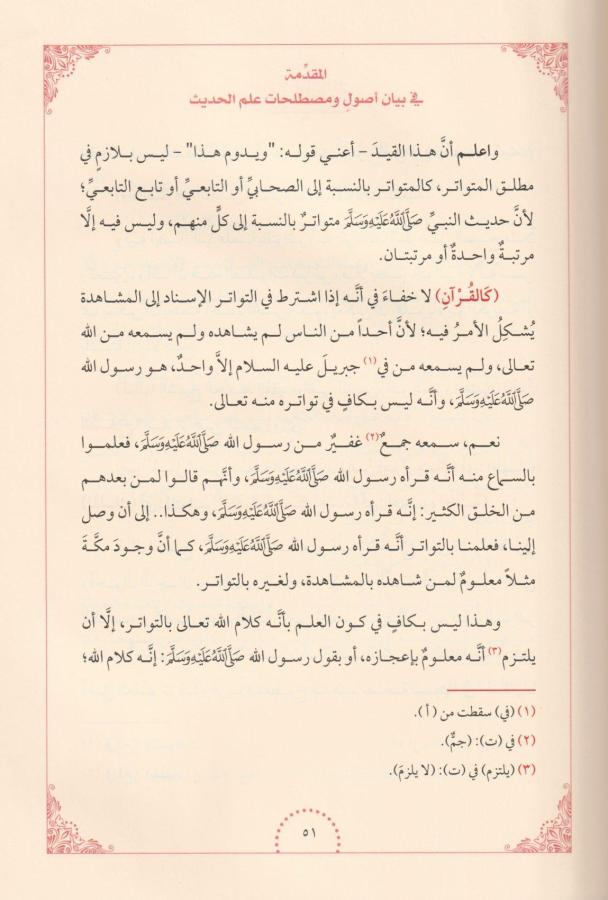 المقدِّمة
في بيان أصولِ ومصطلحات علم الحديث
واعلم أنَّ هذا القيدَ – أعني قوله: "ويدوم هذا" – ليس بلازمٍ في
مطلق المتواتر، كالمتواتر بالنسبة إلى الصحابيِّ أو التابعيِّ أو تابع التابعيِّ؛
لأنَّ حديث النبيِّ صَلَّى اللَّهُ عَلَيْهِ وَسَلَّمَ متواترٌ بالنسبة إلى كلٍّ منهم، وليس فيه إلَّا
مرتبةٌ واحدةٌ أو مرتبتان.
(كَالقُرْآنِ) لا خفاءَ في أنَّه إذا اشترط في التواتر الإسناد إلى المشاهدة
يُشكِلُ الأمرُ فيه؛ لأنَّ أحداً من الناس لم يشاهده ولم يسمعه من الله
تعالى، ولم يسمعه من في(١) جبريلَ عليه السلام إلاَّ واحدٌ، هو رسول الله
صَلَّى اللَّهُ عَلَيْهِ وَسَلَّمَ، وأنَّه ليس بكافٍ في تواتره منه تعالى.
نعم، سمعه جمعٌ(٢) غفيرٌ من رسول الله صَلَّى اللَّهُ عَلَيْهِ وَسَلَّمَ، فعلموا
بالسماع منه أنَّه قرأه رسول الله صَلَّى اللَّهُ عَلَيْهِ وَسَلَّمَ، وأنَّهم قالوا لمن بعدهم
من الخلق الكثير: إنَّه قرأه رسول الله صَلَّى اللَّهُ عَلَيْهِ وَسَلَّمَ، وهكذا.. إلى أن وصل
إلينا، فعلمنا بالتواتر أنَّه قرأه رسول الله صَلَّى اللَّهُ عَلَيْهِ وَسَلَّمَ، كما أنَّ وجودَ مكَّةَ
مثلاً معلومٌ لمن شاهده بالمشاهدة، ولغيره بالتواتر.
وهذا ليس بكافٍ في كون العلم بأنَّه كلام الله تعالى بالتواتر، إلَّا أن
يلتزم(٣) أنَّه معلومٌ بإعجازه، أو بقول رسول الله صَلَّى اللَّهُ عَلَيْهِ وَسَلَّمَ: إنَّه كلام الله؛
(١) (في) سقطت من (أ).
(٢) في (ت): (جمٌّ).
(٣) (يلتزم) في (ت): (لا يلزمَ).
٥١